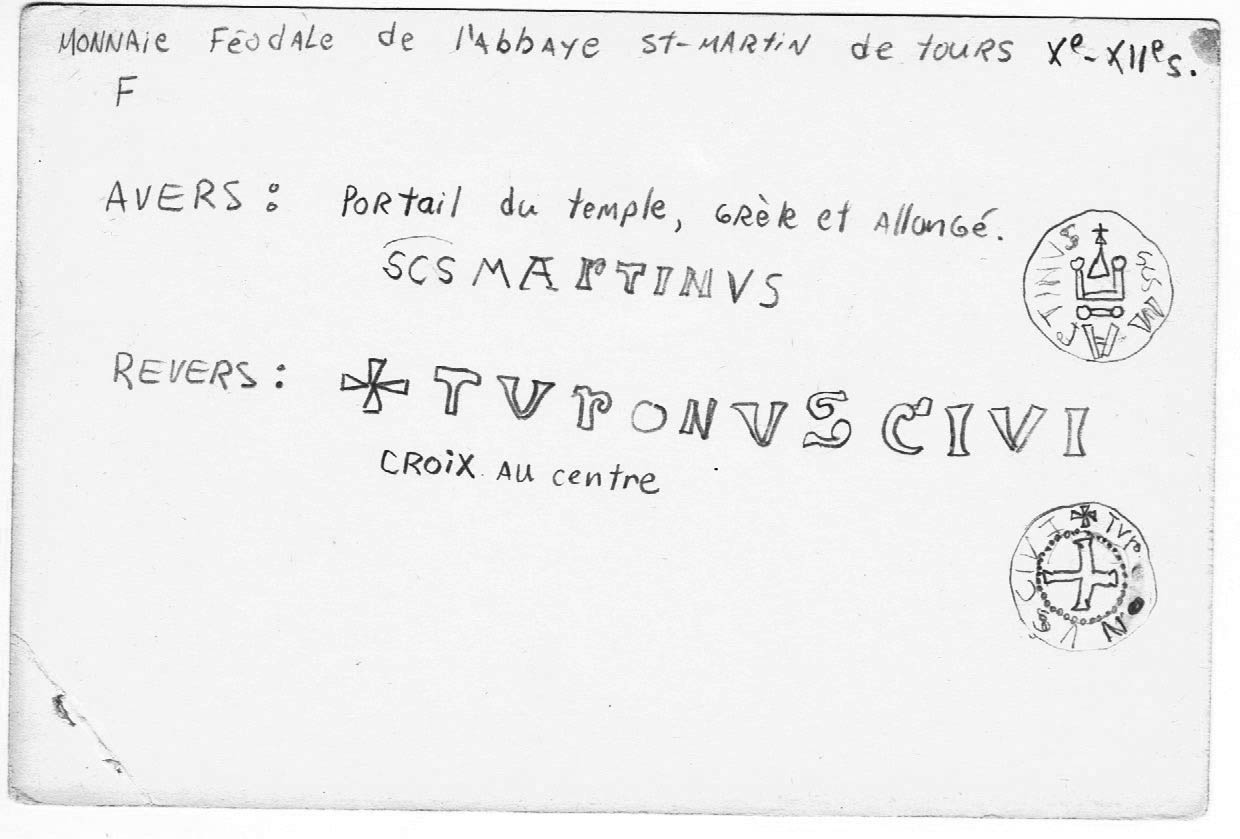 MONNAie FéodALe de l'AbbAYe ST-MARTIN de TOURS Xe-XIIe s.
F
AVERS : PORTail du temple, GRèle et AllonGé.
SCS MAPTINVS
SCS MAPTINVS
REVERS : ✠ TVPONVS CIVI
CROiX AU centre
✠ TVP ● NVS CIVI